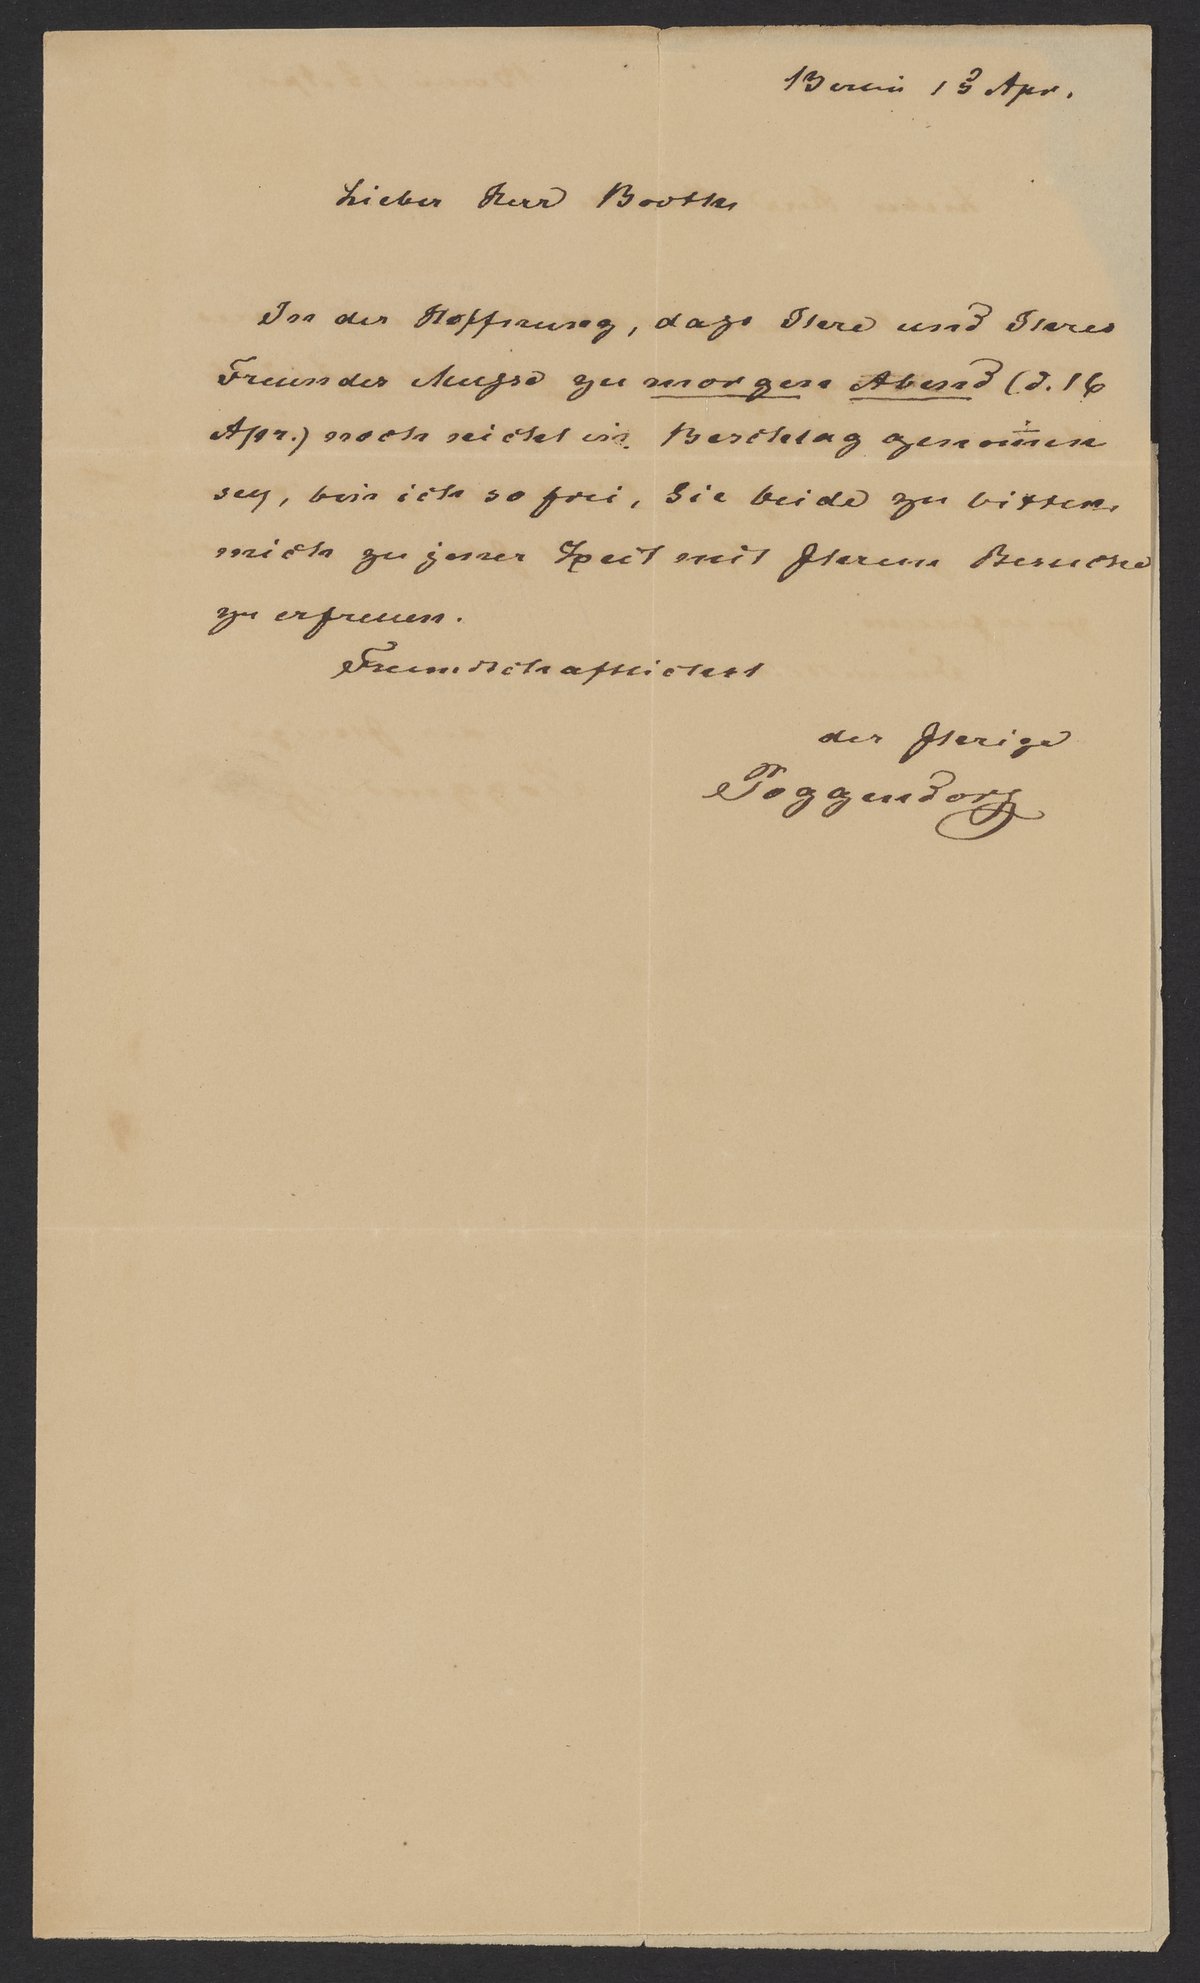 Berlin 15 Apr.
Lieber Herr Booth
In der Hoffnung, dass Ihre und Ihres
Freundes Musse zu morgen Abend (d. 16
Apr.) noch nicht in Beschlag genom̅en
sey, bin ich so frei, Sie beide zu bitten,
mich zu jener Zeit mit Ihrem Besuche
zu erfreuen.
Freundschaftlichst
der Ihrige
Poggendorff